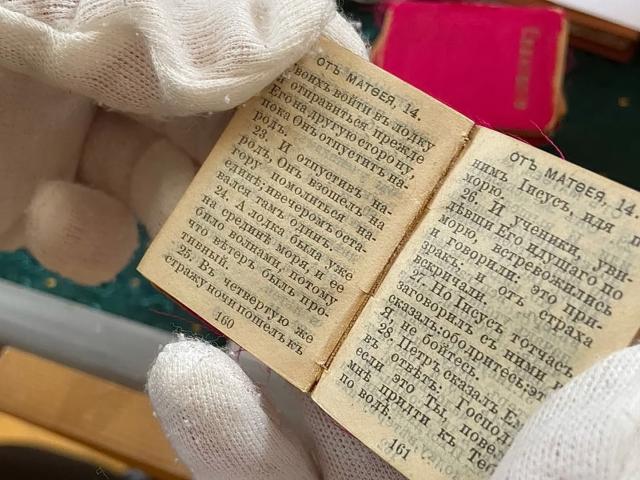 ОТЪ МАТѲЕЯ, 14.
воихъ войти въ лодку
и отправиться прежде
Его на другую сторону,
пока Онъ отпуститъ на-
родъ.
23. И отпустивъ на-
родъ, Онъ взошелъ на
гору помолиться на-
единѣ; и вечеромъ оста-
вался тамъ одинъ.
24. А лодка была уже
на срединѣ моря, и ее
било волнами, потому
что вѣтеръ былъ про-
тивный.
25. Въ четвертую же
стражу ночи пошелъ къ
160
ОТЪ МАТѲЕЯ, 14.
нимъ Іисусъ, идя
морю.
26. И ученики, уви-
дѣвши Его идущаго по
морю, встревожились
и говорили: это при-
зракъ; и отъ страха
вскричали.
27. Но Іисусъ тотчасъ
заговорилъ съ ними
сказалъ: ободритесь; эт
Я, не бойтесь.
28. Петръ сказалъ Ем
въ отвѣтъ: Господ
если это Ты, повел
мнѣ придти къ Теб
по водѣ.
161